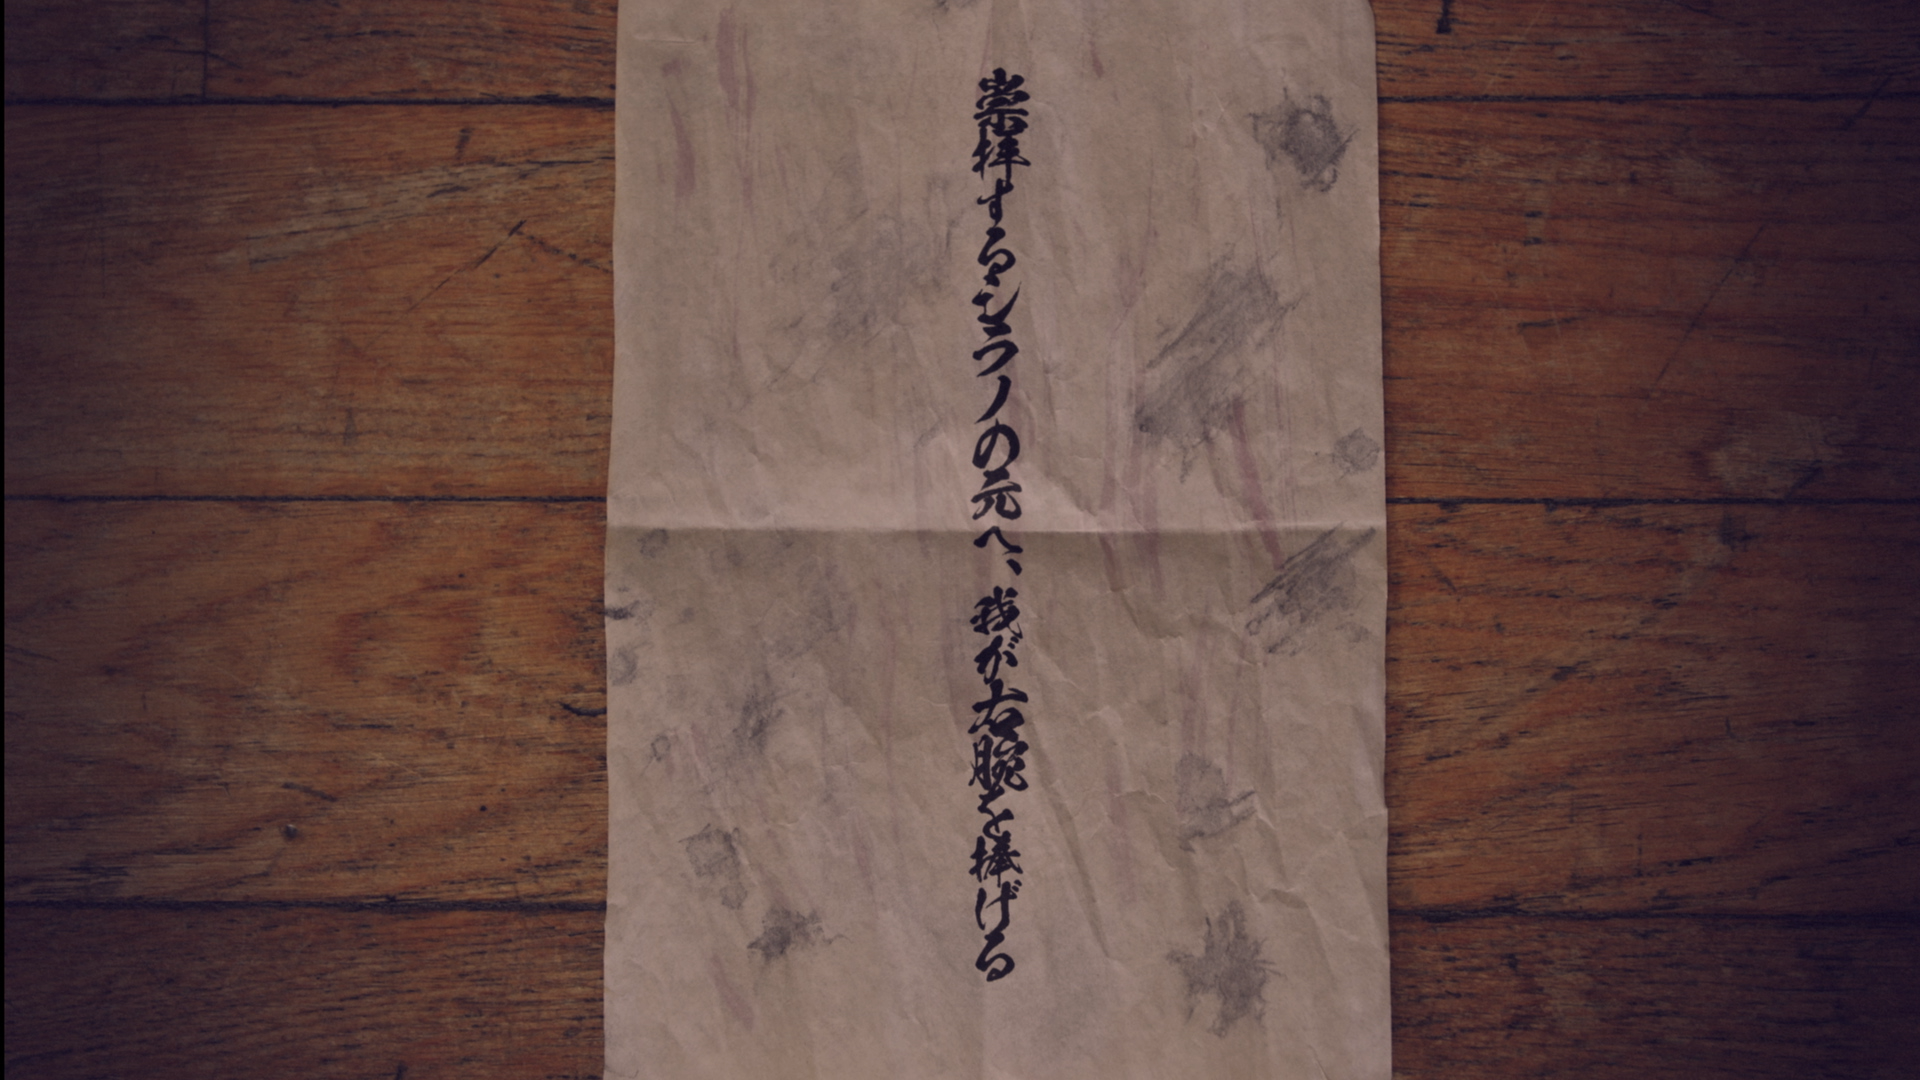 崇拝するシラノの元へ、我が右腕を捧げる